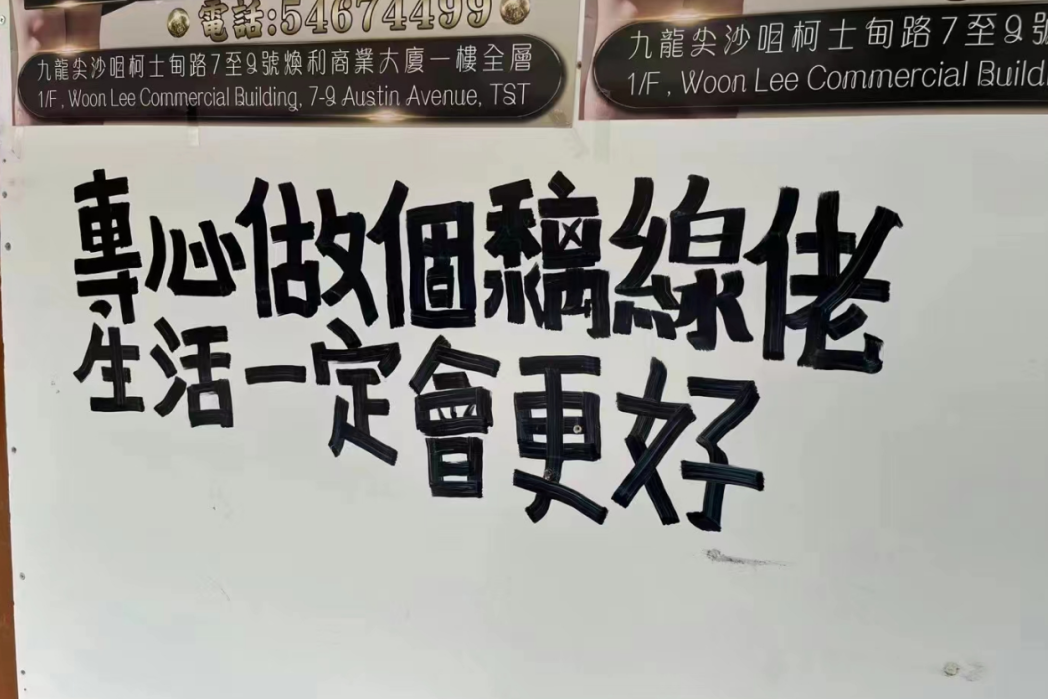 電話:54674499
九龍尖沙咀柯士甸路7至9號煥利商業大廈一樓全層
1/F, Woon Lee Commercial Building, 7-9 Austin Avenue, TST
九龍尖沙咀柯士甸路7至9號
1/F, Woon Lee Commercial Build
專心做個黐線佬
生活一定會更好